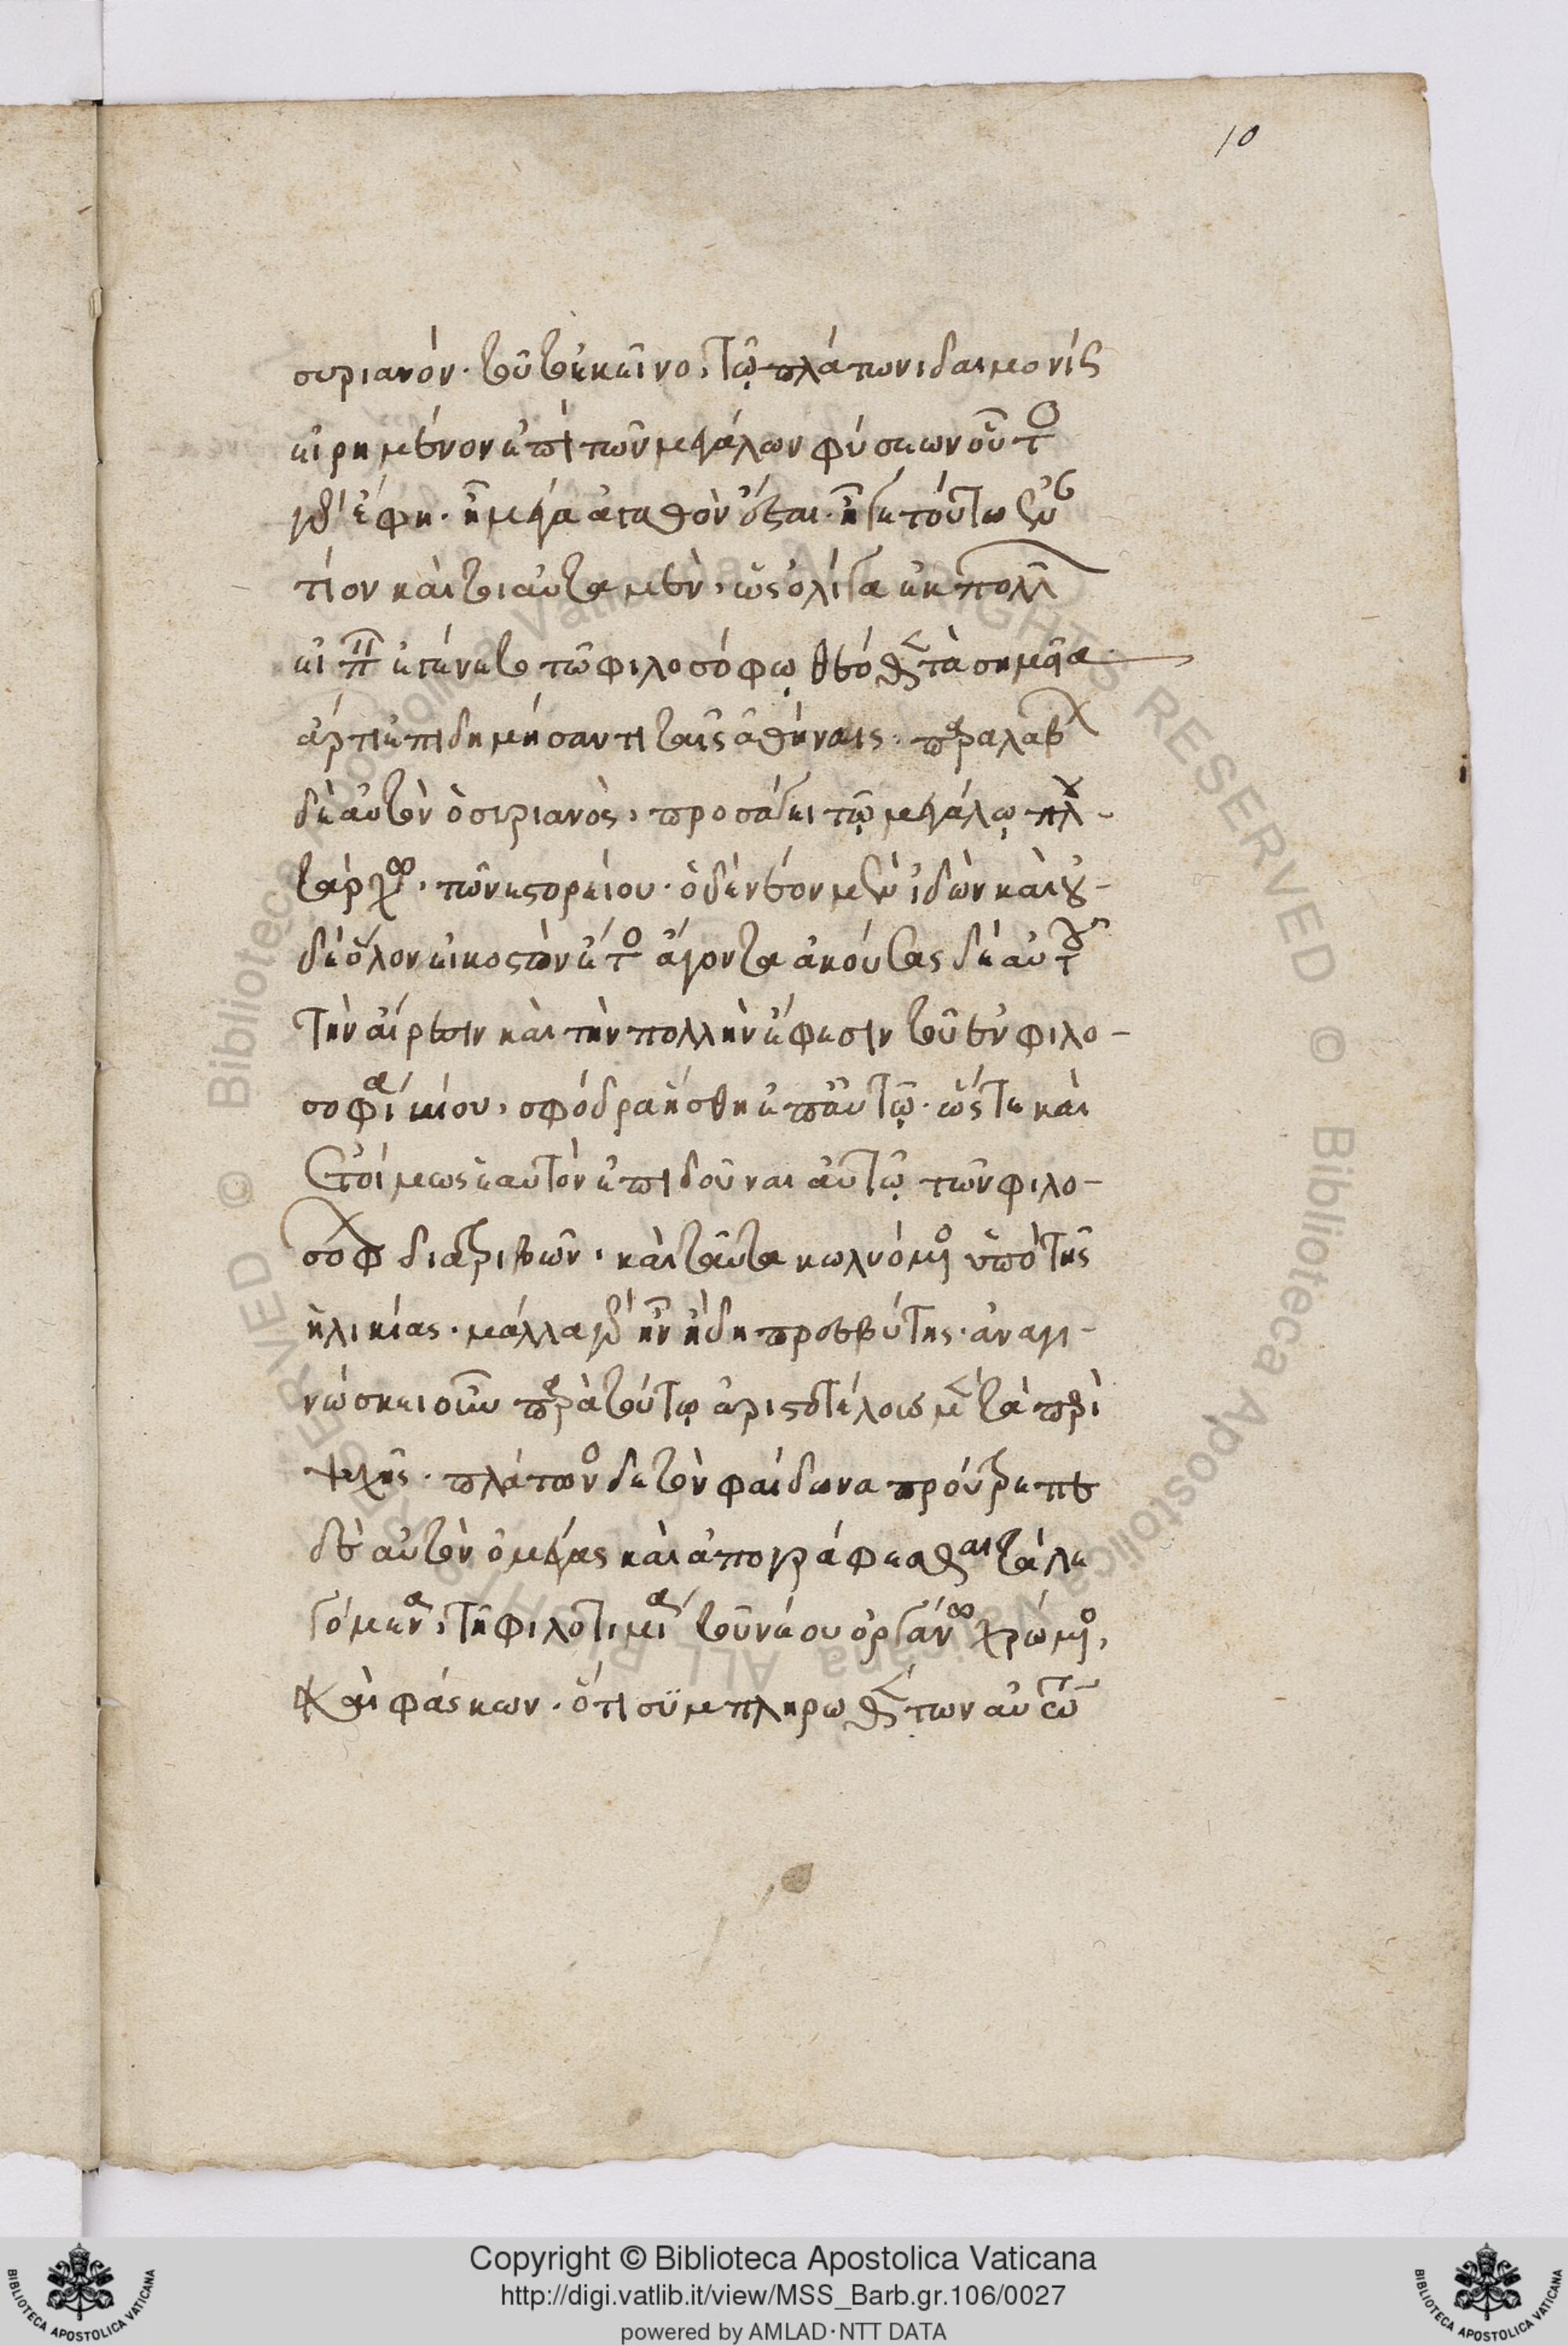 10
συριανόν. τοῦτο ἐκεῖνο, τῷ πλάτωνι δαιμονίως
εἰρημένον ἐπὶ τῶν μεγάλων φύσεων οὗτος
γὰρ ἔφη. ἢ μέγα ἀγαθὸν ἔσται. ἢ γε τούτω ἐναν
τίον καὶ τοιαῦτα μὲν, ὡς ὀλίγα ἐκ πολλῶν
εἰπεῖν ἐγένετο τῶ φιλοσόφῳ θεόθεν τὰ σημεῖα
ἄρτι ἐπιδημήσαντι ταῖς ἀθήναις. παραλαβὼν
δὲ αὐτὸν ὁ συριανὸς, προσάγει τῷ μεγάλῳ πλου-
τάρχω, τῶ νεστορείου. ὁ δὲ νέον μὲν ἰδὼν καὶ οὐ-
δὲ ὅλον εἰκοστὸν ἔτος ἄγοντα ἀκούσας δὲ αὐτοῦ
τὴν αἵρεσιν καὶ τὴν πολλὴν ἔφεσιν τοῦ ἐν φιλο-
σοφία βίου, σφόδρα ἥσθη ἐπ' αὐτῷ. ὥστε καὶ
ἑτοίμως ἑαυτὸν ἐπιδοῦναι αὐτῷ τῶν φιλο-
σόφων διατριβῶν, καὶ ταῦτα κωλυόμενος ὑπὸ τῆς
ἡλικίας. μάλλα γὰρ ἦν ἤδη πρεσβύτης. ἀναγι-
νώσκει οὖν παρὰ τούτῳ ἀριστοτέλους μὲν τὰ περὶ
ψυχῆς. πλάτωνος δὲ τὸν φαίδωνα προύτρεπε
δὲ αὐτὸν ὁ μέγας καὶ ἀπογράφεσθαι τὰ λε
γόμενα, τῆ φιλοτιμία τοῦ νέου ὀργάνω χρώμενος,
καὶ φάσκων. ὅτι συμπληρωθέντων αὐτῶ
Copyright © Biblioteca Apostolica Vaticana
http://digi.vatlib.it/view/MSS_Barb.gr.106/0027
powered by AMLAD·NTT DATA